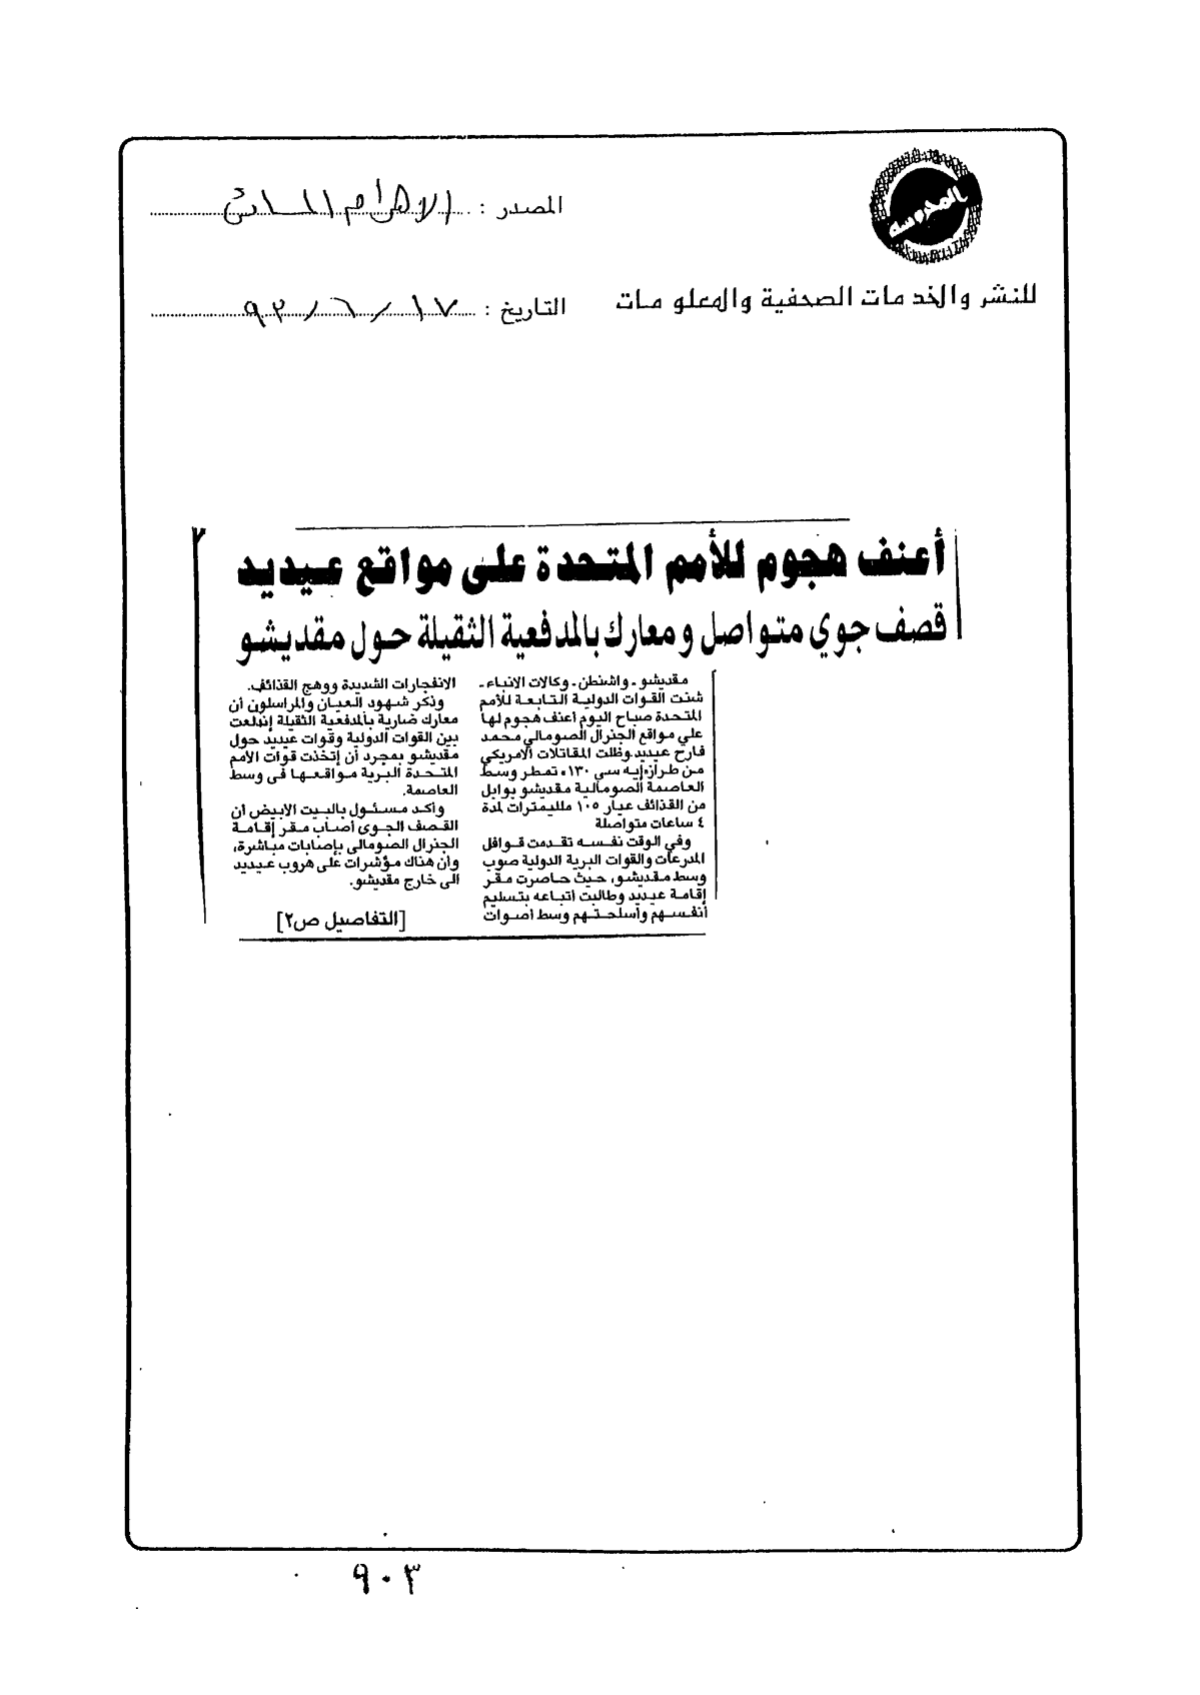 المحروسة
المصدر : الاهرام المسائى
للنشر والخدمات الصحفية والمعلومات
التاريخ : ١٧ / ٦ / ٩٣
أعنف هجوم للأمم المتحدة على مواقع عيديد
قصف جوي متواصل ومعارك بالمدفعية الثقيلة حول مقديشو
مقديشو - واشنطن - وكالات الانباء -
شنت القوات الدولية التابعة للأمم
المتحدة صباح اليوم أعنف هجوم لها
علي مواقع الجنرال الصومالي محمد
فارح عيديد وظلت المقاتلات الأمريكي
من طراز «إيه سى ١٣٠» تمطر وسط
العاصمة الصومالية مقديشو بوابل
من القذائف عيار ١٠٥ ملليمترات لمدة
٤ ساعات متواصلة
وفي الوقت نفسه تقدمت قوافل
المدرعات والقوات البرية الدولية صوب
وسط مقديشو، حيث حاصرت مقر
إقامة عيديد وطالبت أتباعه بتسليم
أنفسهم وأسلحتهم وسط أصوات
الانفجارات الشديدة ووهج القذائف.
وذكر شهود العيان والمراسلون أن
معارك ضارية بالمدفعية الثقيلة إندلعت
بين القوات الدولية وقوات عيديد حول
مقديشو بمجرد أن إتخذت قوات الأمم
المتحدة البرية مواقعها فى وسط
العاصمة.
وأكد مسئول بالبيت الأبيض أن
القصف الجوى أصاب مقر إقامة
الجنرال الصومالى بإصابات مباشرة،
وأن هناك مؤشرات على هروب عيديد
الى خارج مقديشو.
[التفاصيل ص٢]
٩٠٣